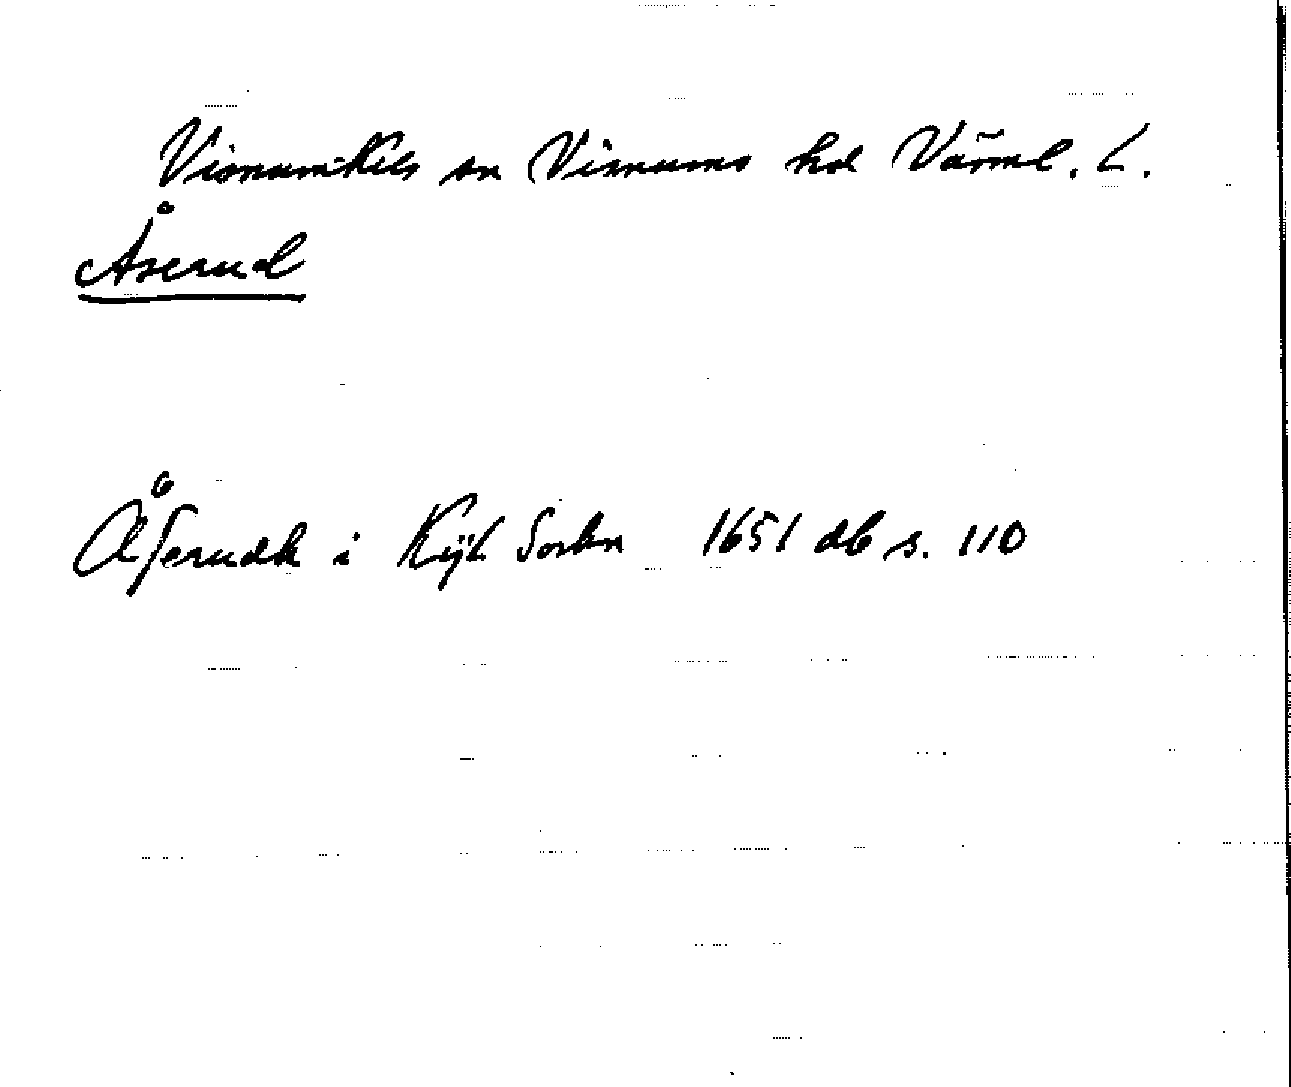 Visnum-Kils sn Visnums hd Värml. L.
Åserud
Åserudh i Kijl Sockn 1651 db s. 110